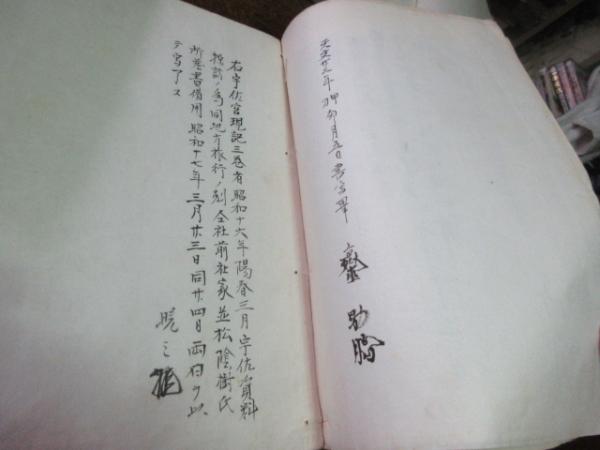 天文廿三年 甲刁 卯月吉日書写畢
齋 助勝
右宇佐宮現記三巻者昭和十六年陽春三月宇佐資料
採訪ノ為同地方旅行ノ刻全社前社家並松陰樹氏
所蔵書借用 昭和十七年三月廿三日同廿四日両日ヲ以
テ写了ス
暁之